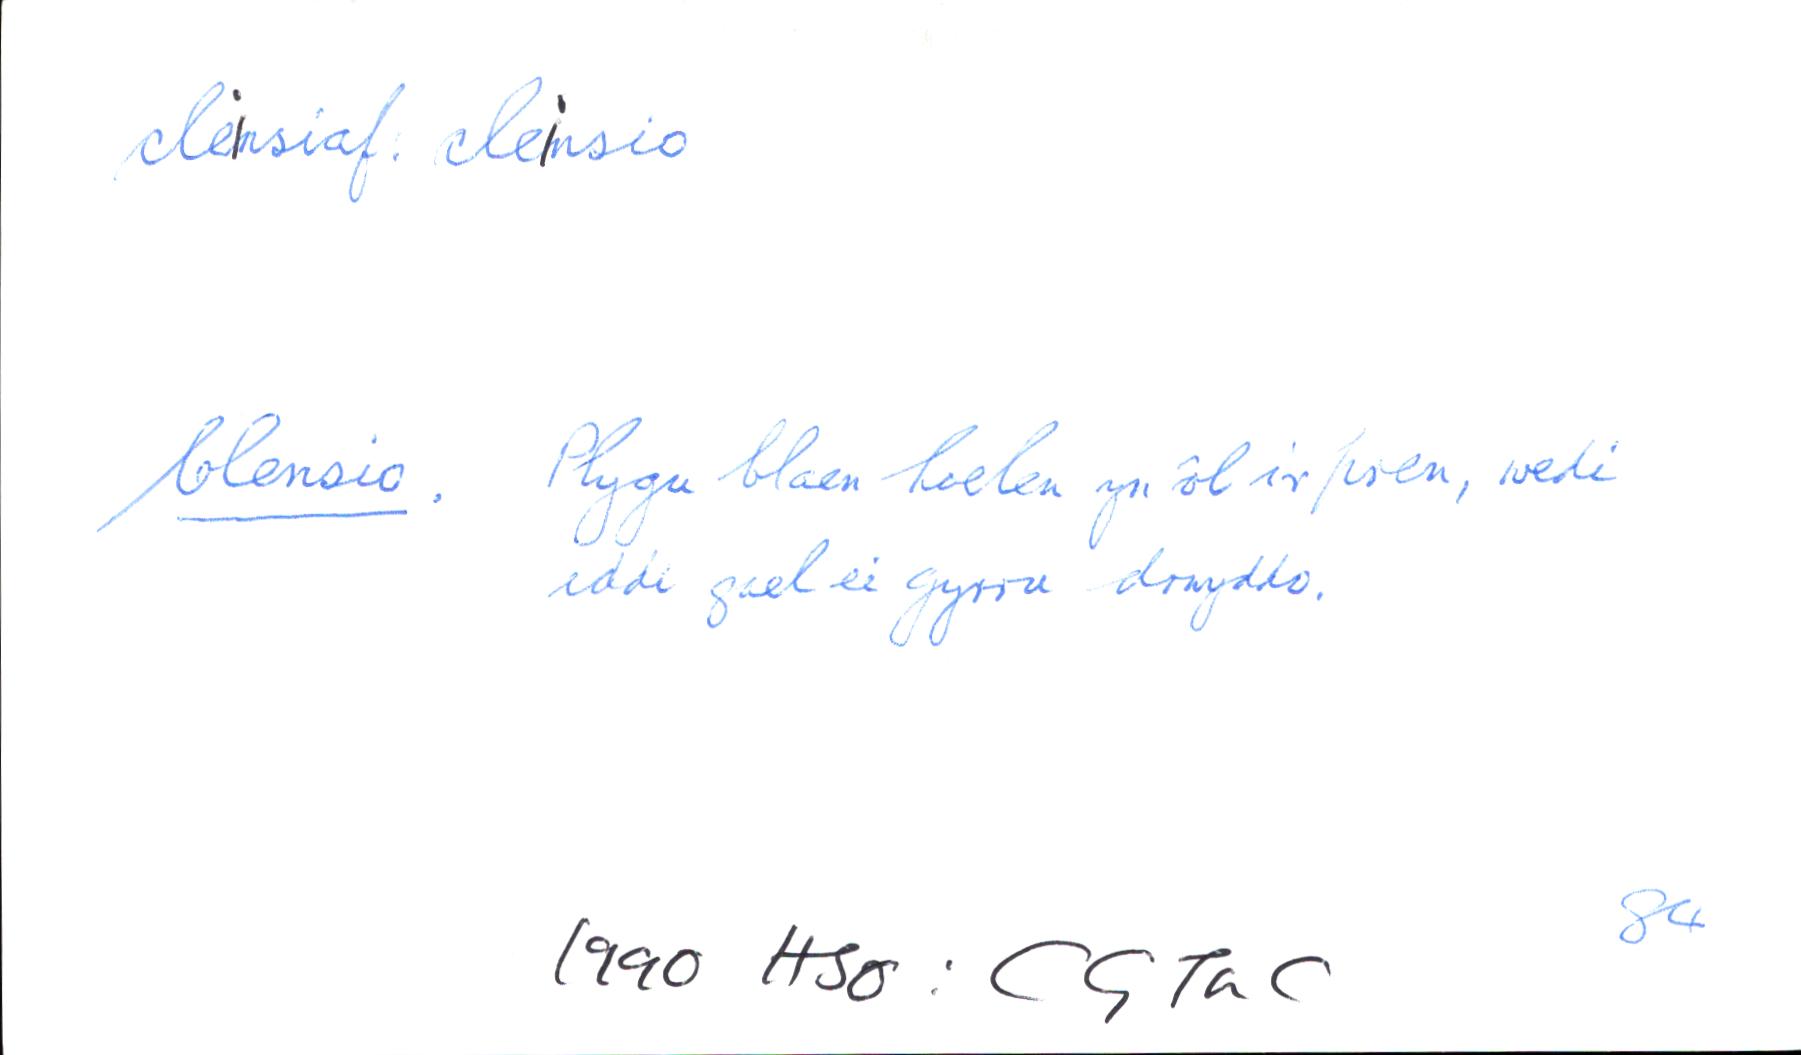 cleinsiaf: cleinsio
Clensio. Plygu blaen hoelen yn ôl i'r pren, wedi
iddi gael ei gyrru drwyddo.
84
1990 HSO: CGTaC